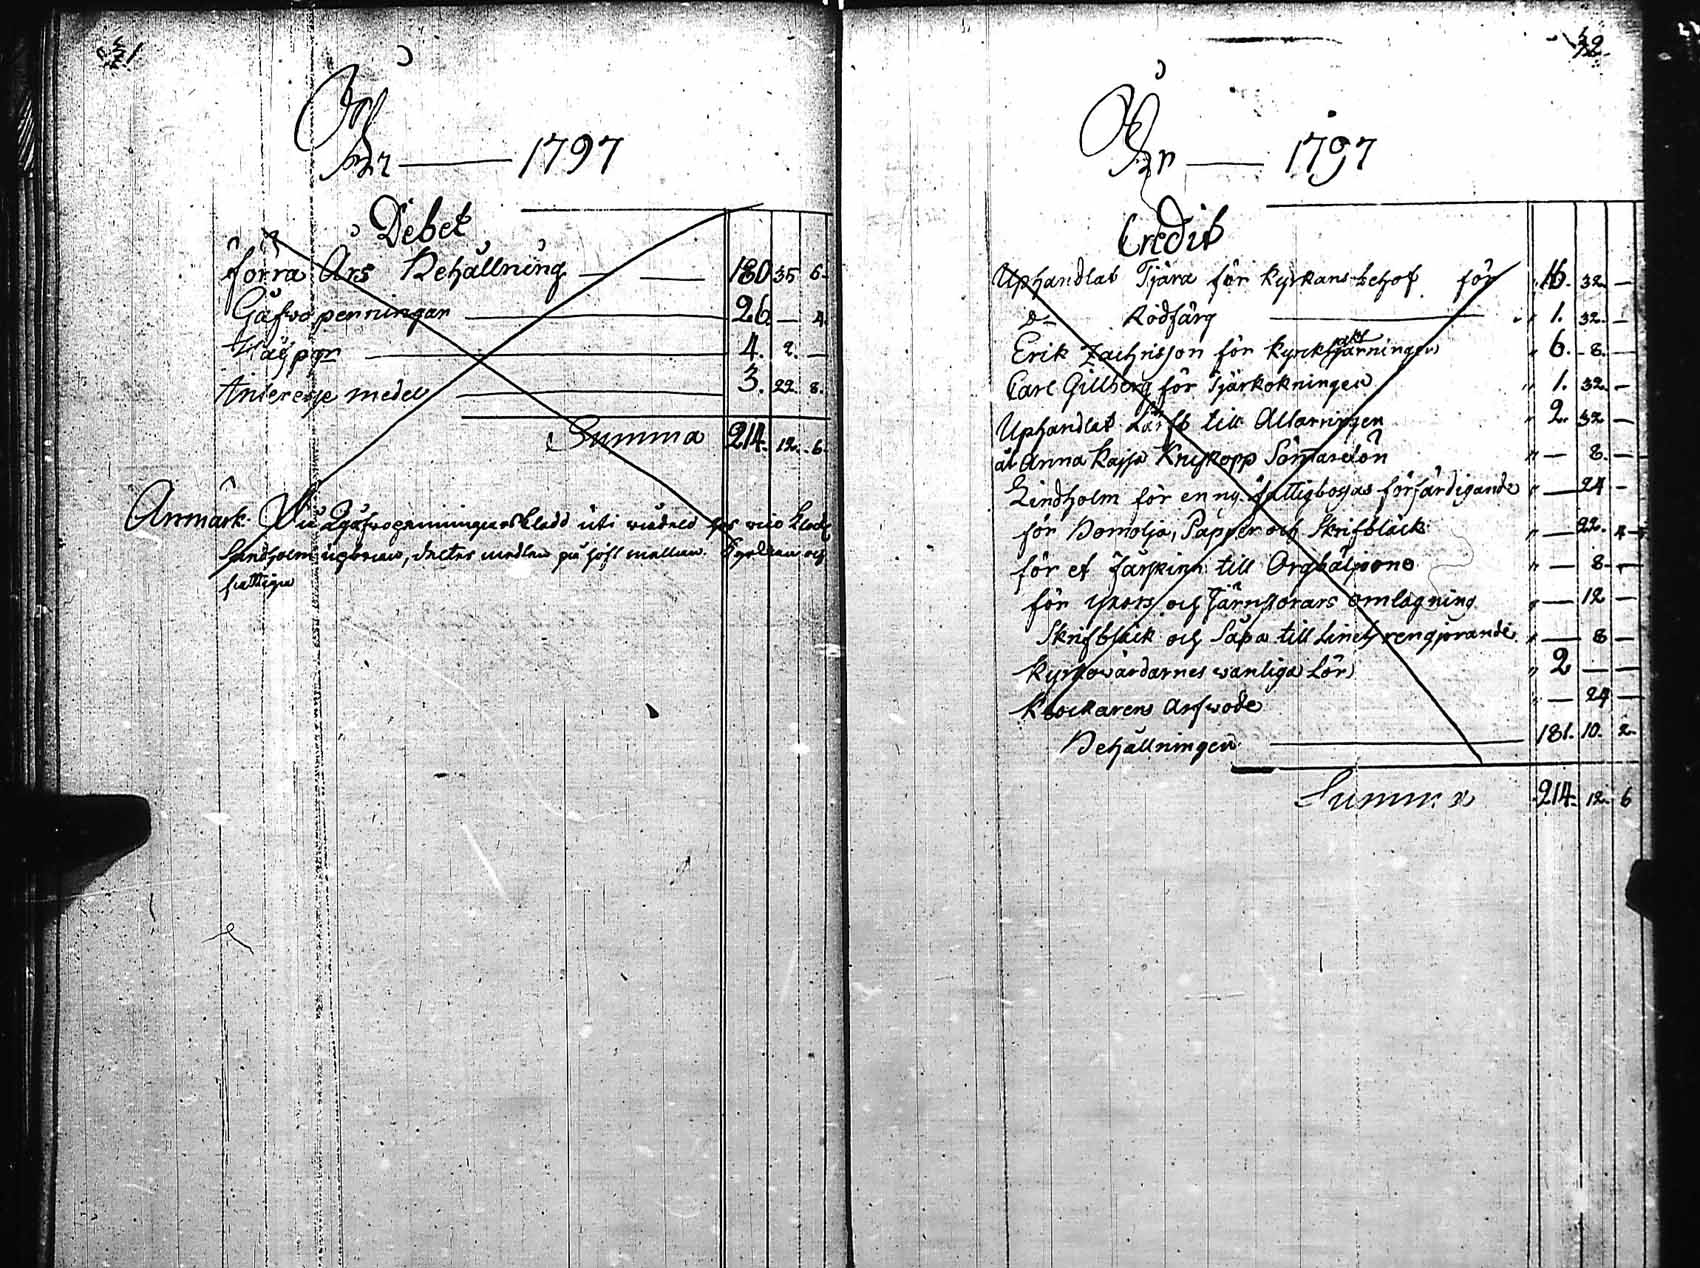 År 1797
Debet
förra Års Behållning 180 35 6
Gåfvopenningar 26 — 4
Håfpgr 4. 2. —
Interesse medel 3. 22 8.
Summa 214. 12. 6.
Anmärk.
fattiga
42
År 1797
Credit
Uphandlat Tjära för kyrkans behof för 16. 32 —
Do Rödfärg 1. 32 —
Erik Zachrisson för kyrktjärningen 6. 8. —
Carl Gillberg för Tjärkokningen 1. 32 —
Uphandlat Lärft till Altarringen 2. 32 —
åt Anna Kajsa Knapkopp Sömarelön — 8 —
Lindholm för en ny fattigbössas förfärdigande — 24 —
för Bomolja, Papper och Skrifbläck — 22. 4
för et fårskinn till Orgbälgorne — 8 —
för och Järnstörars omlagning — 12 —
Skrifbläck och Såpa till Linets rengörande — 8 —
kyrkovärdarnes vanliga Lön 2 — —
klockarens Arfvode — 24 —
Behållningen 181. 10. 2
Summa 214. 12. 6